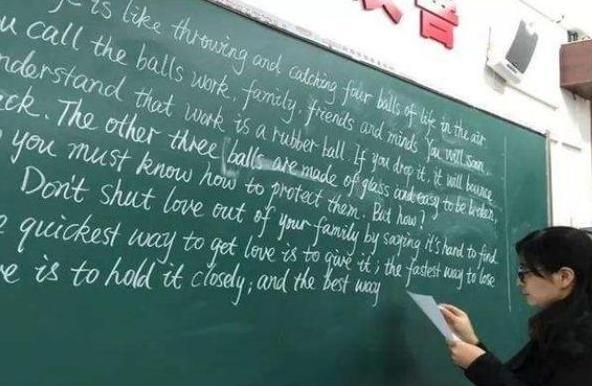 is like throwing and catching four balls of life in the air
u call the balls work, family, friends and minds. You will soon
nderstand that work is a rubber ball. If you drop it, it will bounce
ck. The other three balls are made of glass and easy to be broken,
you must know how to protect them. But how?
Don't shut love out of your family by saying it's hard to find
quickest way to get love is to give it; the fastest way to lose
e is to hold it closely; and the best way